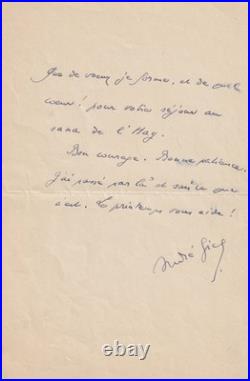 Que de vœux je forme, et de quel
cœur! pour votre séjour au
sana de l'Hay.
Bon courage. Bonne patience.
J'ai passé par là et sais ce que
c'est. Le printemps vous aide!
André Gide